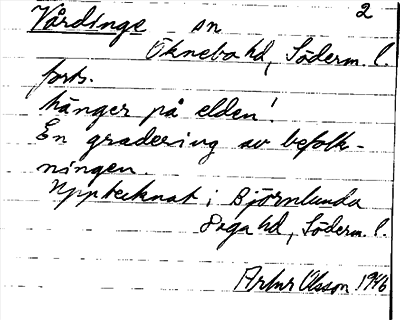 Vårdinge sn 2
Öknebo hd, Söderm. l.
forts.
hänger på elden!
En gradering av befolk-
ningen.
Upptecknat i Björnlunda
Daga hd, Söderm. l.
Artur Olsson 1946